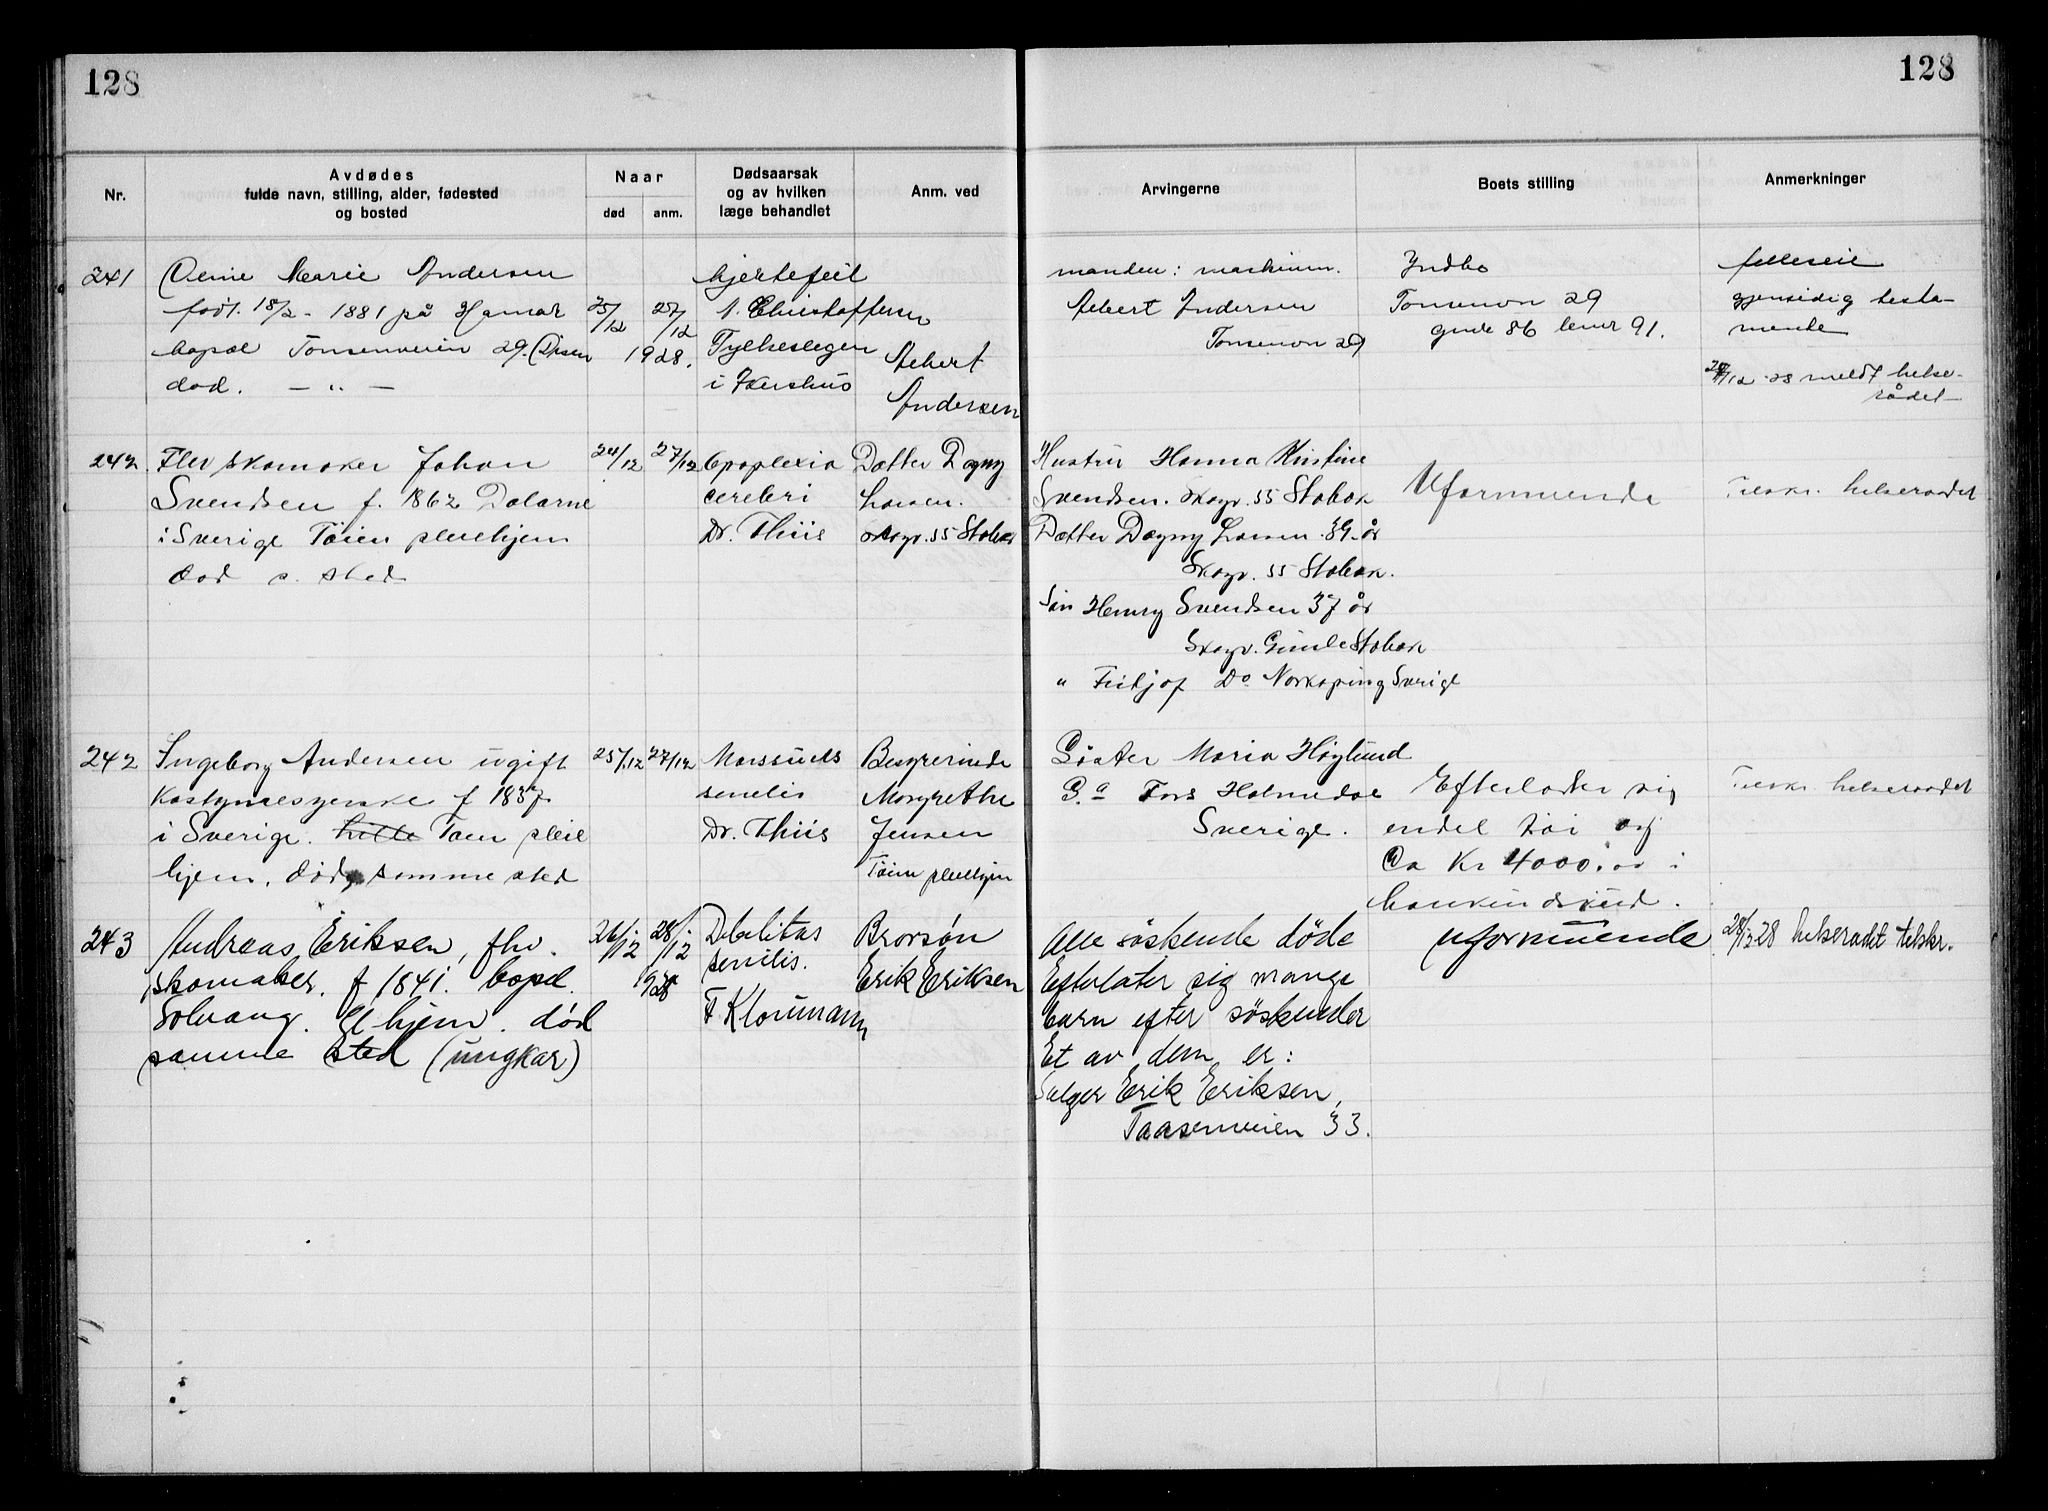 128
128
Nr.
Avdødes
fulde navn, stilling, alder, fødested
og bosted
Naar
død
anm.
Dødsaarsak
og av hvilken
læge behandlet
Anm. ved
Arvingerne
Boets stilling
Anmerkninger
241
Marie Andersen
født. 18/2 - 1881 på Hamar
bopæl Tonsenveien 29.
død. — " —
25/12
28/12
1928.
hjertefeil
A. Christoffersen
Fylkeslegen
i Akershus
Albert
Andersen
manden: maskinm.
Albert Andersen
Tonsenvn 29
Indbo
Tonsenvn 29
gnr 86 bnr 91.
felleseie
gjensidig testa-
mente
28/12 28 meldt helse-
rådet
242
Fhv skomaker Johan
Svendsen f. 1862 Dalarne
i Sverige Tøien pleiehjem
død s. sted
24/12
27/12
Apoplexia
cerebri
Dr. Thiis
Datter Dagny
Larsen.
Skogv. 55 Stabæk
Hustru Hanna Kristine
Svendsen. Skogv. 55 Stabæk
Datter Dagny Larsen 39 år
Skogv. 55 Stabæk.
Søn Henry Svendsen 37 år
Skogv. Gimle Stabæk
" Fritjof Do Norkøping Sverige
Uformuende
Tilskr. helseraadet
242
Ingeborg Andersen ugift
f 1837
i Sverige. Tøien pleie
hjem, død samme sted
25/12
27/12
Marasmus
senilis
Dr. Thiis
Bestyrerinde
Margrethe
Jensen
Tøien pleiehjem
Søster Maria Høglund
Fors Holmedal
Sverige.
Efterlader sig
endel tøi og
Ca Kr 4000.00 i
bankindskud.
Tilskr. helseraadet
243
Andreas Eriksen, fhv.
skomaker. f 1841. bopel.
Solvang. Gl hjem. død
samme sted (ungkar)
26/12
28/12
1928
Debilitas
senilis.
F. Kloumann
Brorsøn
Erik Eriksen
Alle søskende døde
Efterlater sig mange
barn efter søskender
Et av dem er:
Selger Erik Eriksen,
Taasenveien 33.
uformuende
28/12 28 helseradet tilskr.